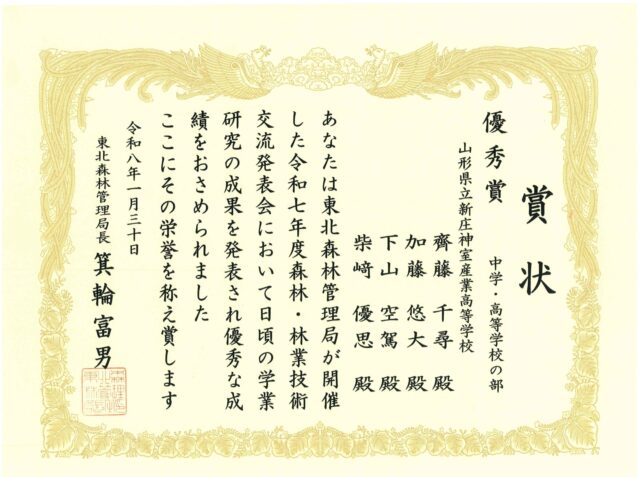 賞状
優秀賞 中学・高等学校の部
山形県立新庄神室産業高等学校
齊藤 千尋 殿
加藤 悠大 殿
下山 空駕 殿
柴﨑 優思 殿
あなたは東北森林管理局が開催
した令和七年度森林・林業技術
交流発表会において日頃の学業
研究の成果を発表され優秀な成
績をおさめられました
ここにその栄誉を称え賞します
令和八年一月三十日
東北森林管理局長 箕輪富男